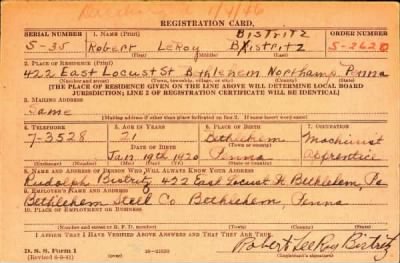 1/4/46
REGISTRATION CARD
BISTRITZ
SERIAL NUMBER 1. NAME (Print) ORDER NUMBER
S-35 Robert LeRoy Bistritz S-2620
(First) (Middle) (Last)
2. PLACE OF RESIDENCE (Print)
422 East Locust St Bethlehem Northamp. Penna
(Number and street) (Town, township, village, or city) (County) (State)
[THE PLACE OF RESIDENCE GIVEN ON THE LINE ABOVE WILL DETERMINE LOCAL BOARD
JURISDICTION; LINE 2 OF REGISTRATION CERTIFICATE WILL BE IDENTICAL]
3. MAILING ADDRESS
Same
[Mailing address if other than place indicated on line 2. If same insert word same]
4. TELEPHONE 5. AGE IN YEARS 6. PLACE OF BIRTH 7. OCCUPATION
7-3528 21 Bethlehem Machinist
DATE OF BIRTH (Town or county)
Jan. 19th 1920 Penna Apprentice
(Exchange) (Number) (Mo.) (Day) (Yr.) (State or country)
8. NAME AND ADDRESS OF PERSON WHO WILL ALWAYS KNOW YOUR ADDRESS
Rudolph Bistritz 422 East Locust St. Bethlehem, Pa
9. EMPLOYER'S NAME AND ADDRESS
Bethlehem Steel Co Bethlehem, Penna
10. PLACE OF EMPLOYMENT OR BUSINESS
(Number and street or R. F. D. number) (Town) (County) (State)
I AFFIRM THAT I HAVE VERIFIED ABOVE ANSWERS AND THAT THEY ARE TRUE.
D. S. S. Form 1 Robert LeRoy Bistritz
(Revised 6-9-41) 16-21630 (Registrant's signature)